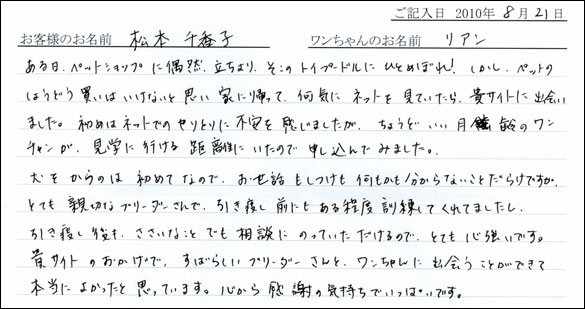 ご記入日 2010年 8月 21日
お客様のお名前 松本 千香子 ワンちゃんのお名前 リアン
ある日、ペットショップに偶然、立ちより、そこのトイプードルにひとめぼれ! しかし、ペットの
しょうどう買いはいけないと思い家に帰って、何気にネットを見ていたら、貴サイトに出会い
ました。初めはネットでのやりとりに不安を感じましたが、ちょうどいい月齢のワン
チャンが、見学に行ける距離にいたので申し込んでみました。
犬をかうのは初めてなので、お世話もしつけも何もかも分からないことだらけですが、
とても親切なブリーダーさんで、引き渡し前にもある程度訓練してくれてましたし、
引き渡し後も、ささいなことでも相談にのっていただけるので、とても心強いです。
貴サイトのおかげで、すばらしいブリーダーさんと、ワンちゃんに出会うことができて
本当によかったと思っています。心から感謝の気持ちでいっぱいです。